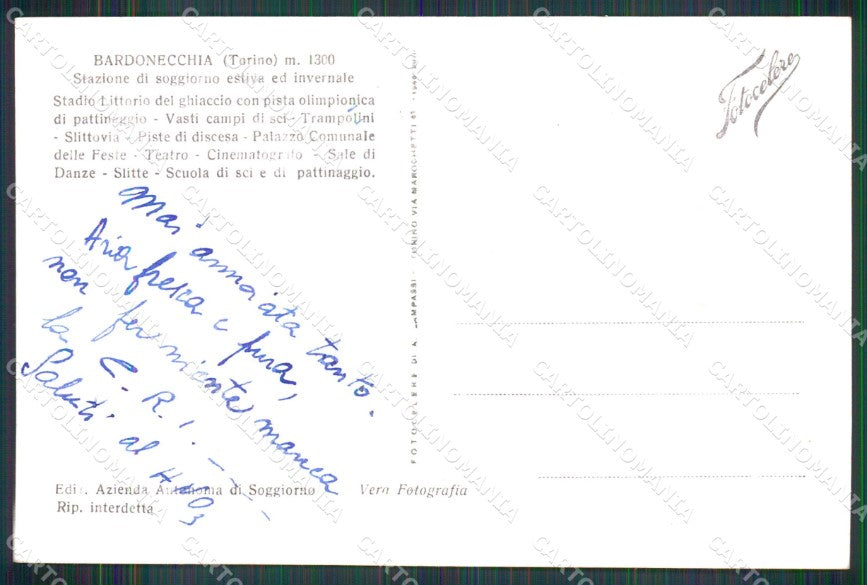 BARDONECCHIA (Torino) m. 1300
Stazione di soggiorno estiva ed invernale
Stadio Littorio del ghiaccio con pista olimpionica
di pattinaggio - Vasti campi di sci - Trampolini
- Slittovia - Piste di discesa - Palazzo Comunale
delle Feste - Teatro - Cinematografo - Sale di
Danze - Slitte - Scuola di sci e di pattinaggio.
Mai annoiata tanto.
Aria fresca e pura,
non fa niente manca
la C. R. I. - - - -
Saluti al HNO3
Edit. Azienda Autonoma di Soggiorno
Rip. interdetta
Vera Fotografia
FOTOCELERE DI A. CAMPASSI - TORINO VIA MAROCHETTI 41
Fotocelere
CARTOLINOMANIA